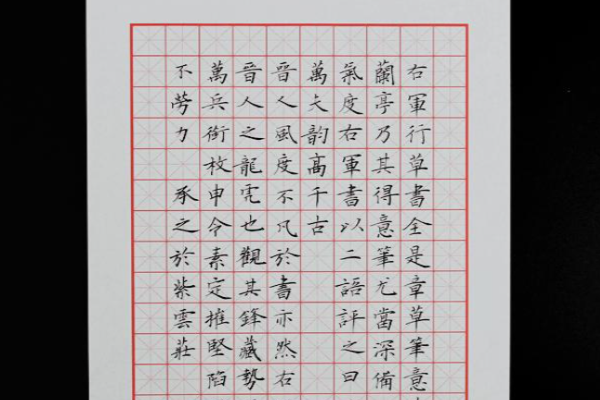 右軍行草書全是章草筆意
蘭亭乃其得意筆尤當深備
氣度右軍書以二語評之曰
萬夫韵高千古
晉人風度不凡於書亦然右
晉人之龍虎也觀其鋒藏勢
萬兵銜枚申令素定摧堅陷
不勞力 承之於紫雲莊